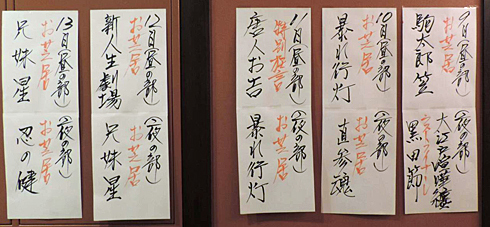 9月(昼の部)
お芝居
駒太郎笠
(夜の部)
お芝居
ショースペシャル
黒田節
10月(昼の部)
お芝居
暴れ行灯
(夜の部)
お芝居
直参魂
11月(昼の部)
特別狂言
唐人お吉
(夜の部)
お芝居
暴れ行灯
12月(昼の部)
お芝居
新人生劇場
(夜の部)
お芝居
兄妹星
13日(昼の部)
お芝居
兄妹星
(夜の部)
お芝居
忍の健